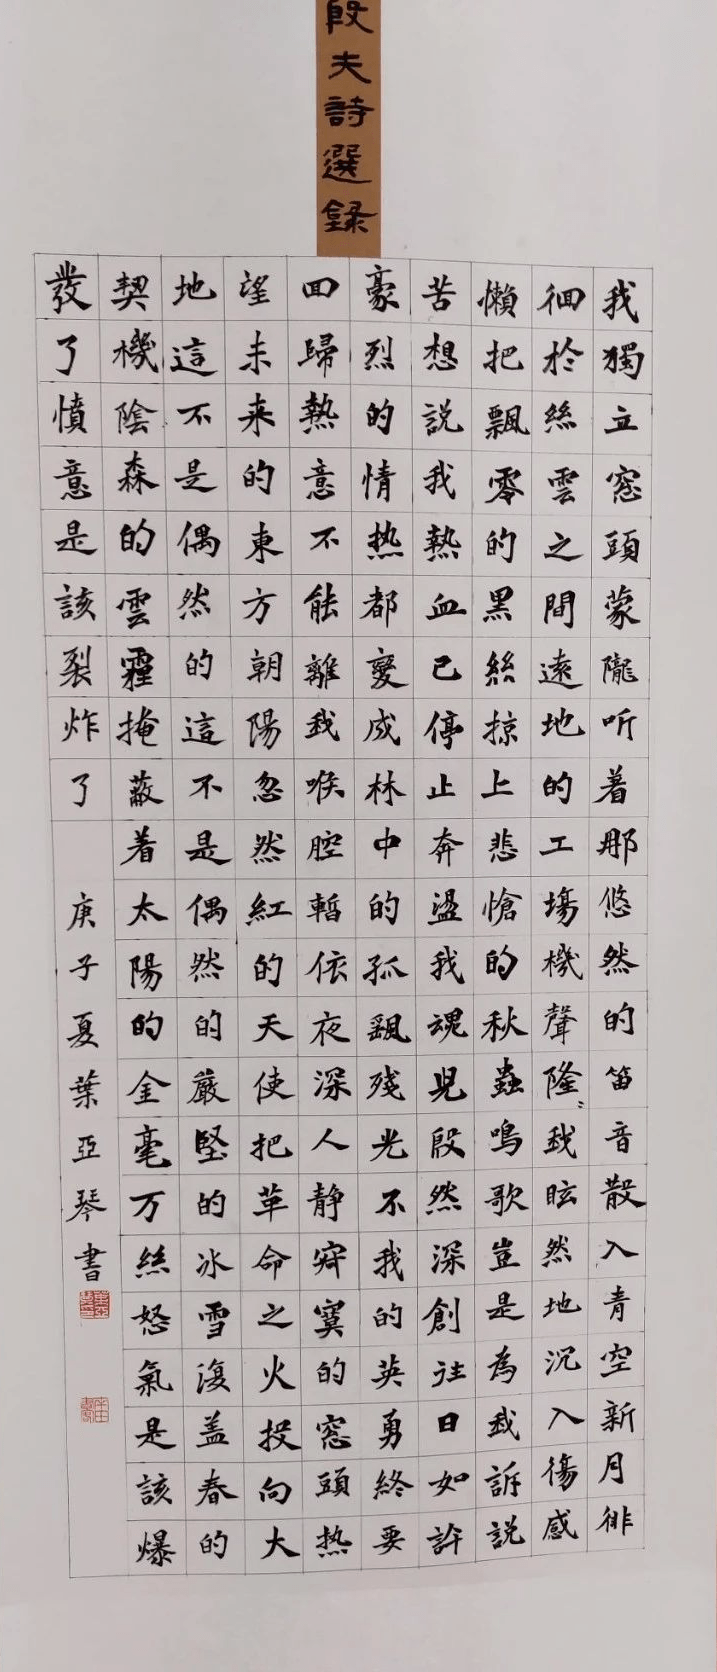 殷夫詩選錄
我獨立窓頭蒙隴听着那悠然的笛音散入青空新月徘
徊於絲雲之間遠地的工場機聲隆〻我眩然地沉入傷感
懶把飄零的黑絲掠上悲愴的秋蟲鳴歌豈是為我訴説
苦想説我熱血已停止奔盪我魂児殷然深創往日如許
豪烈的情热都變成林中的孤飄残光不我的英勇終要
回歸熱意不能離我喉腔暫依夜深人静窓頭热
望未来的東方朝陽忽然紅的天使把革命之火投向大
地這不是偶然的這不是偶然的嚴堅的冰雪復盖春的
契機陰森的雲霾掩蔽着太陽的金毫万絲怒氣是該爆
發了憤意是該裂炸了
庚子夏葉亞琴書